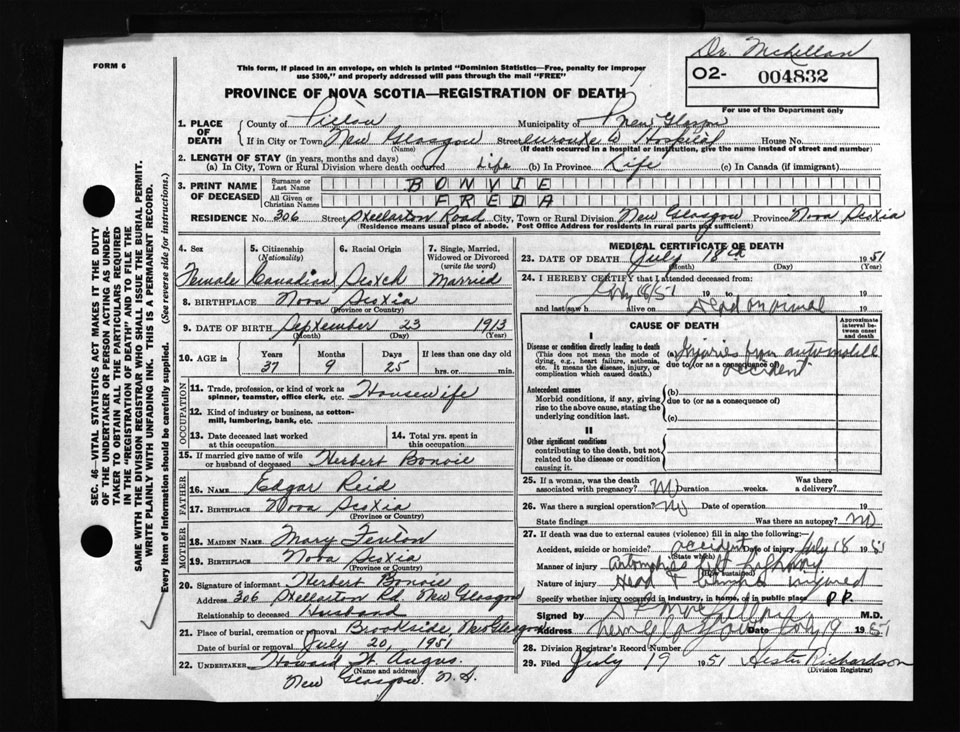 Dr. McKellan
FORM 6
O2- 004832
For use of the Department only
This form, if placed in an envelope, on which is printed "Dominion Statistics—Free, penalty for improper
use $300," and properly addressed will pass through the mail "FREE"
PROVINCE OF NOVA SCOTIA—REGISTRATION OF DEATH
1. PLACE OF DEATH
County of Pictou Municipality of New Glasgow
If in City or Town New Glasgow (Name) Street enroute to Hospital House No.
(If death occurred in a hospital or institution, give the name instead of street and number)
2. LENGTH OF STAY (in years, months and days)
(a) In City, Town or Rural Division where death occurred Life (b) In Province Life (c) In Canada (if immigrant)
3. PRINT NAME OF DECEASED
Surname or Last Name BONVIE
All Given or Christian Names FREDA
RESIDENCE No. 306 Street Stellarton Road City, Town or Rural Division New Glasgow Province Nova Scotia
(Residence means usual place of abode. Post Office Address for residents in rural parts not sufficient)
4. Sex Female
5. Citizenship (Nationality) Canadian
6. Racial Origin Scotch
7. Single, Married, Widowed or Divorced (write the word) Married
8. BIRTHPLACE Nova Scotia
(Province or Country)
9. DATE OF BIRTH September 23 1913
(Month) (Day) (Year)
10. AGE in Years 37 Months 9 Days 25 If less than one day old hrs. or min.
OCCUPATION
11. Trade, profession, or kind of work as spinner, teamster, office clerk, etc. Housewife
12. Kind of industry or business, as cotton-mill, lumbering, bank, etc.
13. Date deceased last worked at this occupation
14. Total yrs. spent in this occupation
15. If married give name of wife or husband of deceased Herbert Bonvie
FATHER
16. NAME Edgar Reid
17. BIRTHPLACE Nova Scotia
(Province or Country)
MOTHER
18. MAIDEN NAME Mary Fenton
19. BIRTHPLACE Nova Scotia
(Province or Country)
20. Signature of informant Herbert Bonvie
Address 306 Stellarton Rd. New Glasgow
Relationship to deceased Husband
21. Place of burial, cremation or removal Brookside, New Glasgow
Date of burial or removal July 20, 1951
22. UNDERTAKER Howard H. Angus.
(Name and address)
New Glasgow N.S.
MEDICAL CERTIFICATE OF DEATH
23. DATE OF DEATH July 18th 1951
(Month) (Day) (Year)
24. I HEREBY CERTIFY that I attended deceased from:
July 18/51 19 to 19
and last saw h alive on Dead on arrival 19
CAUSE OF DEATH
Approximate interval between onset and death
I
Disease or condition directly leading to death
(This does not mean the mode of dying, e.g., heart failure, asthenia, etc. It means the disease, injury, or complication which caused death.)
(a) Injuries from automobile accident
due to (or as a consequence of)
Antecedent causes
Morbid conditions, if any, giving rise to the above cause, stating the underlying condition last.
(b)
due to (or as a consequence of)
(c)
II
Other significant conditions
contributing to the death, but not related to the disease or condition causing it.
25. If a woman, was the death associated with pregnancy? No Duration weeks. Was there a delivery?
26. Was there a surgical operation? No Date of operation 19
State findings Was there an autopsy? No
27. If death was due to external causes (violence) fill in also the following:
Accident, suicide or homicide? accident Date of injury July 18 1951
(State which)
Manner of injury automobile left highway
(How sustained)
Nature of injury Head & injured
Specify whether injury occurred in industry, in home, or in public place P.P.
Signed by M.D.
Address New Glasgow Date July 19 1951
28. Division Registrar's Record Number
29. Filed July 19 1951 Hester Richardson
(Division Registrar)
SEC. 46—VITAL STATISTICS ACT MAKES IT THE DUTY
OF THE UNDERTAKER OR PERSON ACTING AS UNDER-
TAKER TO OBTAIN ALL THE PARTICULARS REQUIRED
IN THE "REGISTRATION OF DEATH" AND TO FILE THE
SAME WITH THE DIVISION REGISTRAR WHO SHALL ISSUE THE BURIAL PERMIT.
WRITE PLAINLY WITH UNFADING INK. THIS IS A PERMANENT RECORD.
Every item of information should be carefully supplied. (See reverse side for instructions.)